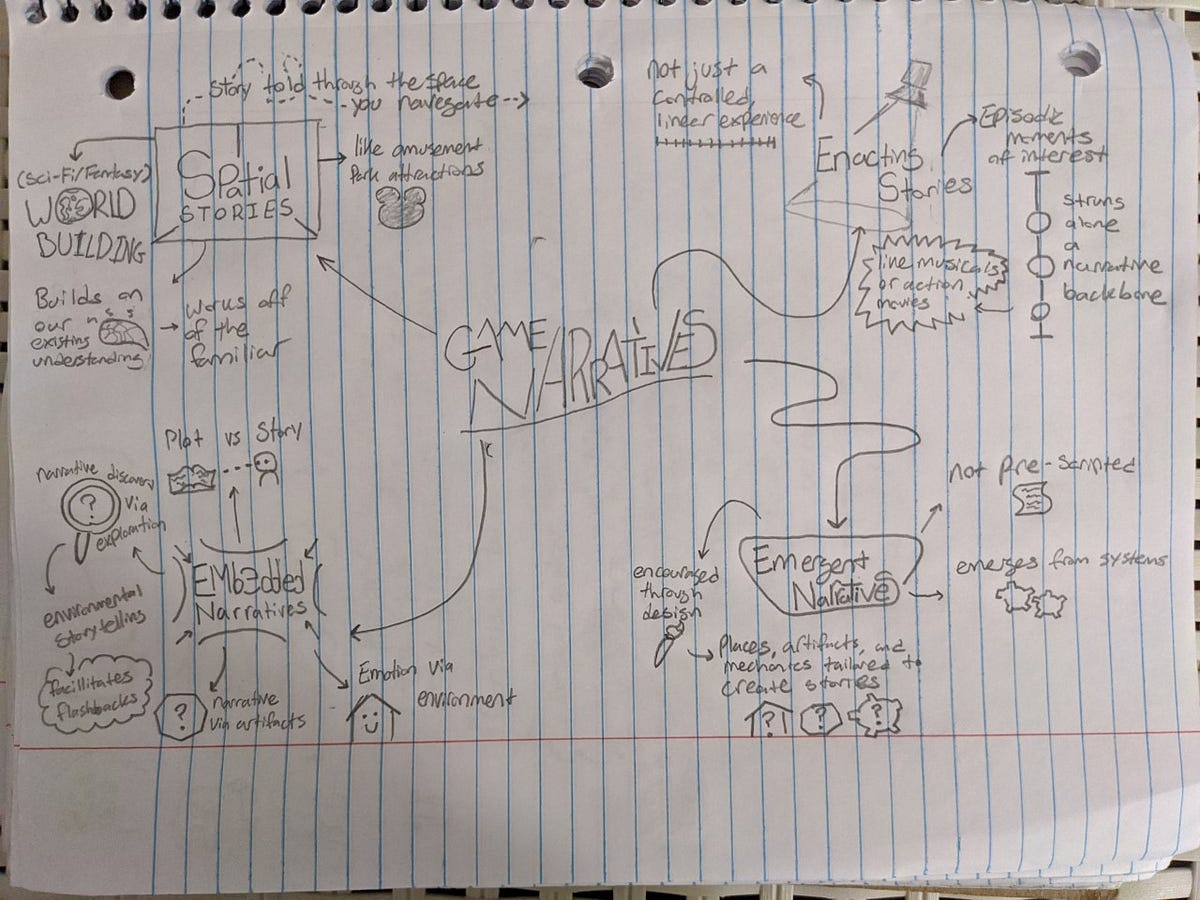 Story told through the space
you navegate
(Sci-Fi/Fantasy)
WORLD
BUILDING
Spatial
STORIES
like amusement
Park attractions
Builds on
our
existing
understanding
Works off
of the
familiar
GAME
NARRATIVES
not just a
controlled,
linear experience
Enacting
Stories
Episodic
moments
of interest
strung
along
a
narrative
backbone
like musicals
or action
movies
Plot vs Story
narrative discovery
via
exploration
?
environmental
storytelling
facilitates
flashbacks
EMbEdded
Narratives
?
narrative
via artifacts
Emotion via
environment
Emergent
Narrative
not pre-scripted
emerges from systems
encouraged
through
design
Places, artifacts, and
mechanics tailored to
create stories
? ? ?